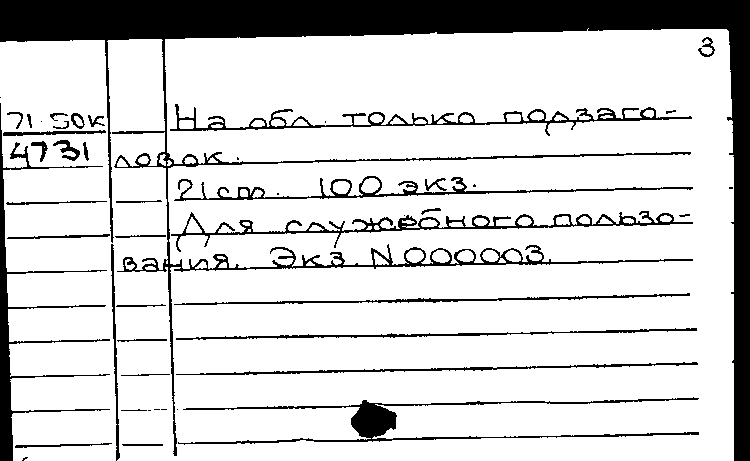 3
71 50к На обл. только подзаго-
4731 ловок.
21 cm. 100 экз.
Для служебного пользо-
вания. Экз. N000003.